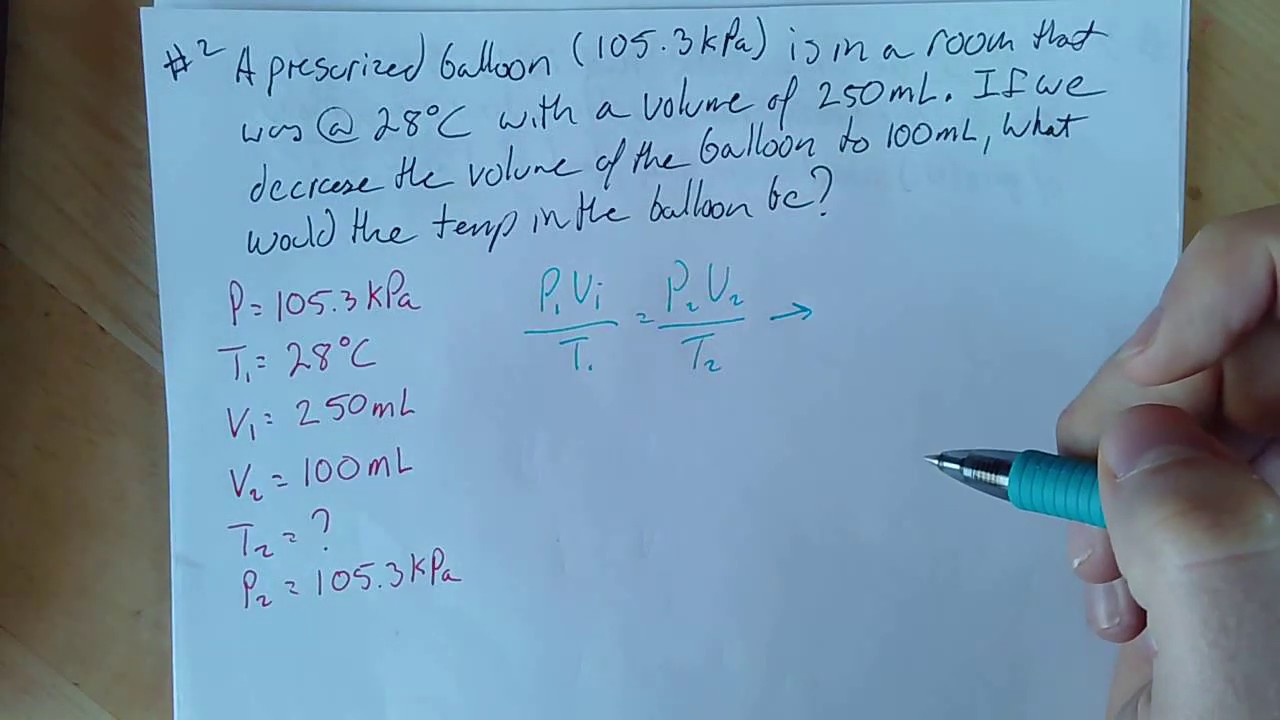 #2 A prescrized balloon (105.3kPa) is in a room that
was @ 28°C with a volume of 250mL. If we
decrease the volume of the balloon to 100mL, What
would the temp in the balloon be?
P = 105.3 kPa
T₁ = 28°C
V₁ = 250mL
V₂ = 100mL
T₂ = ?
P₂ = 105.3 kPa
P₁V₁/T₁ = P₂V₂/T₂ →